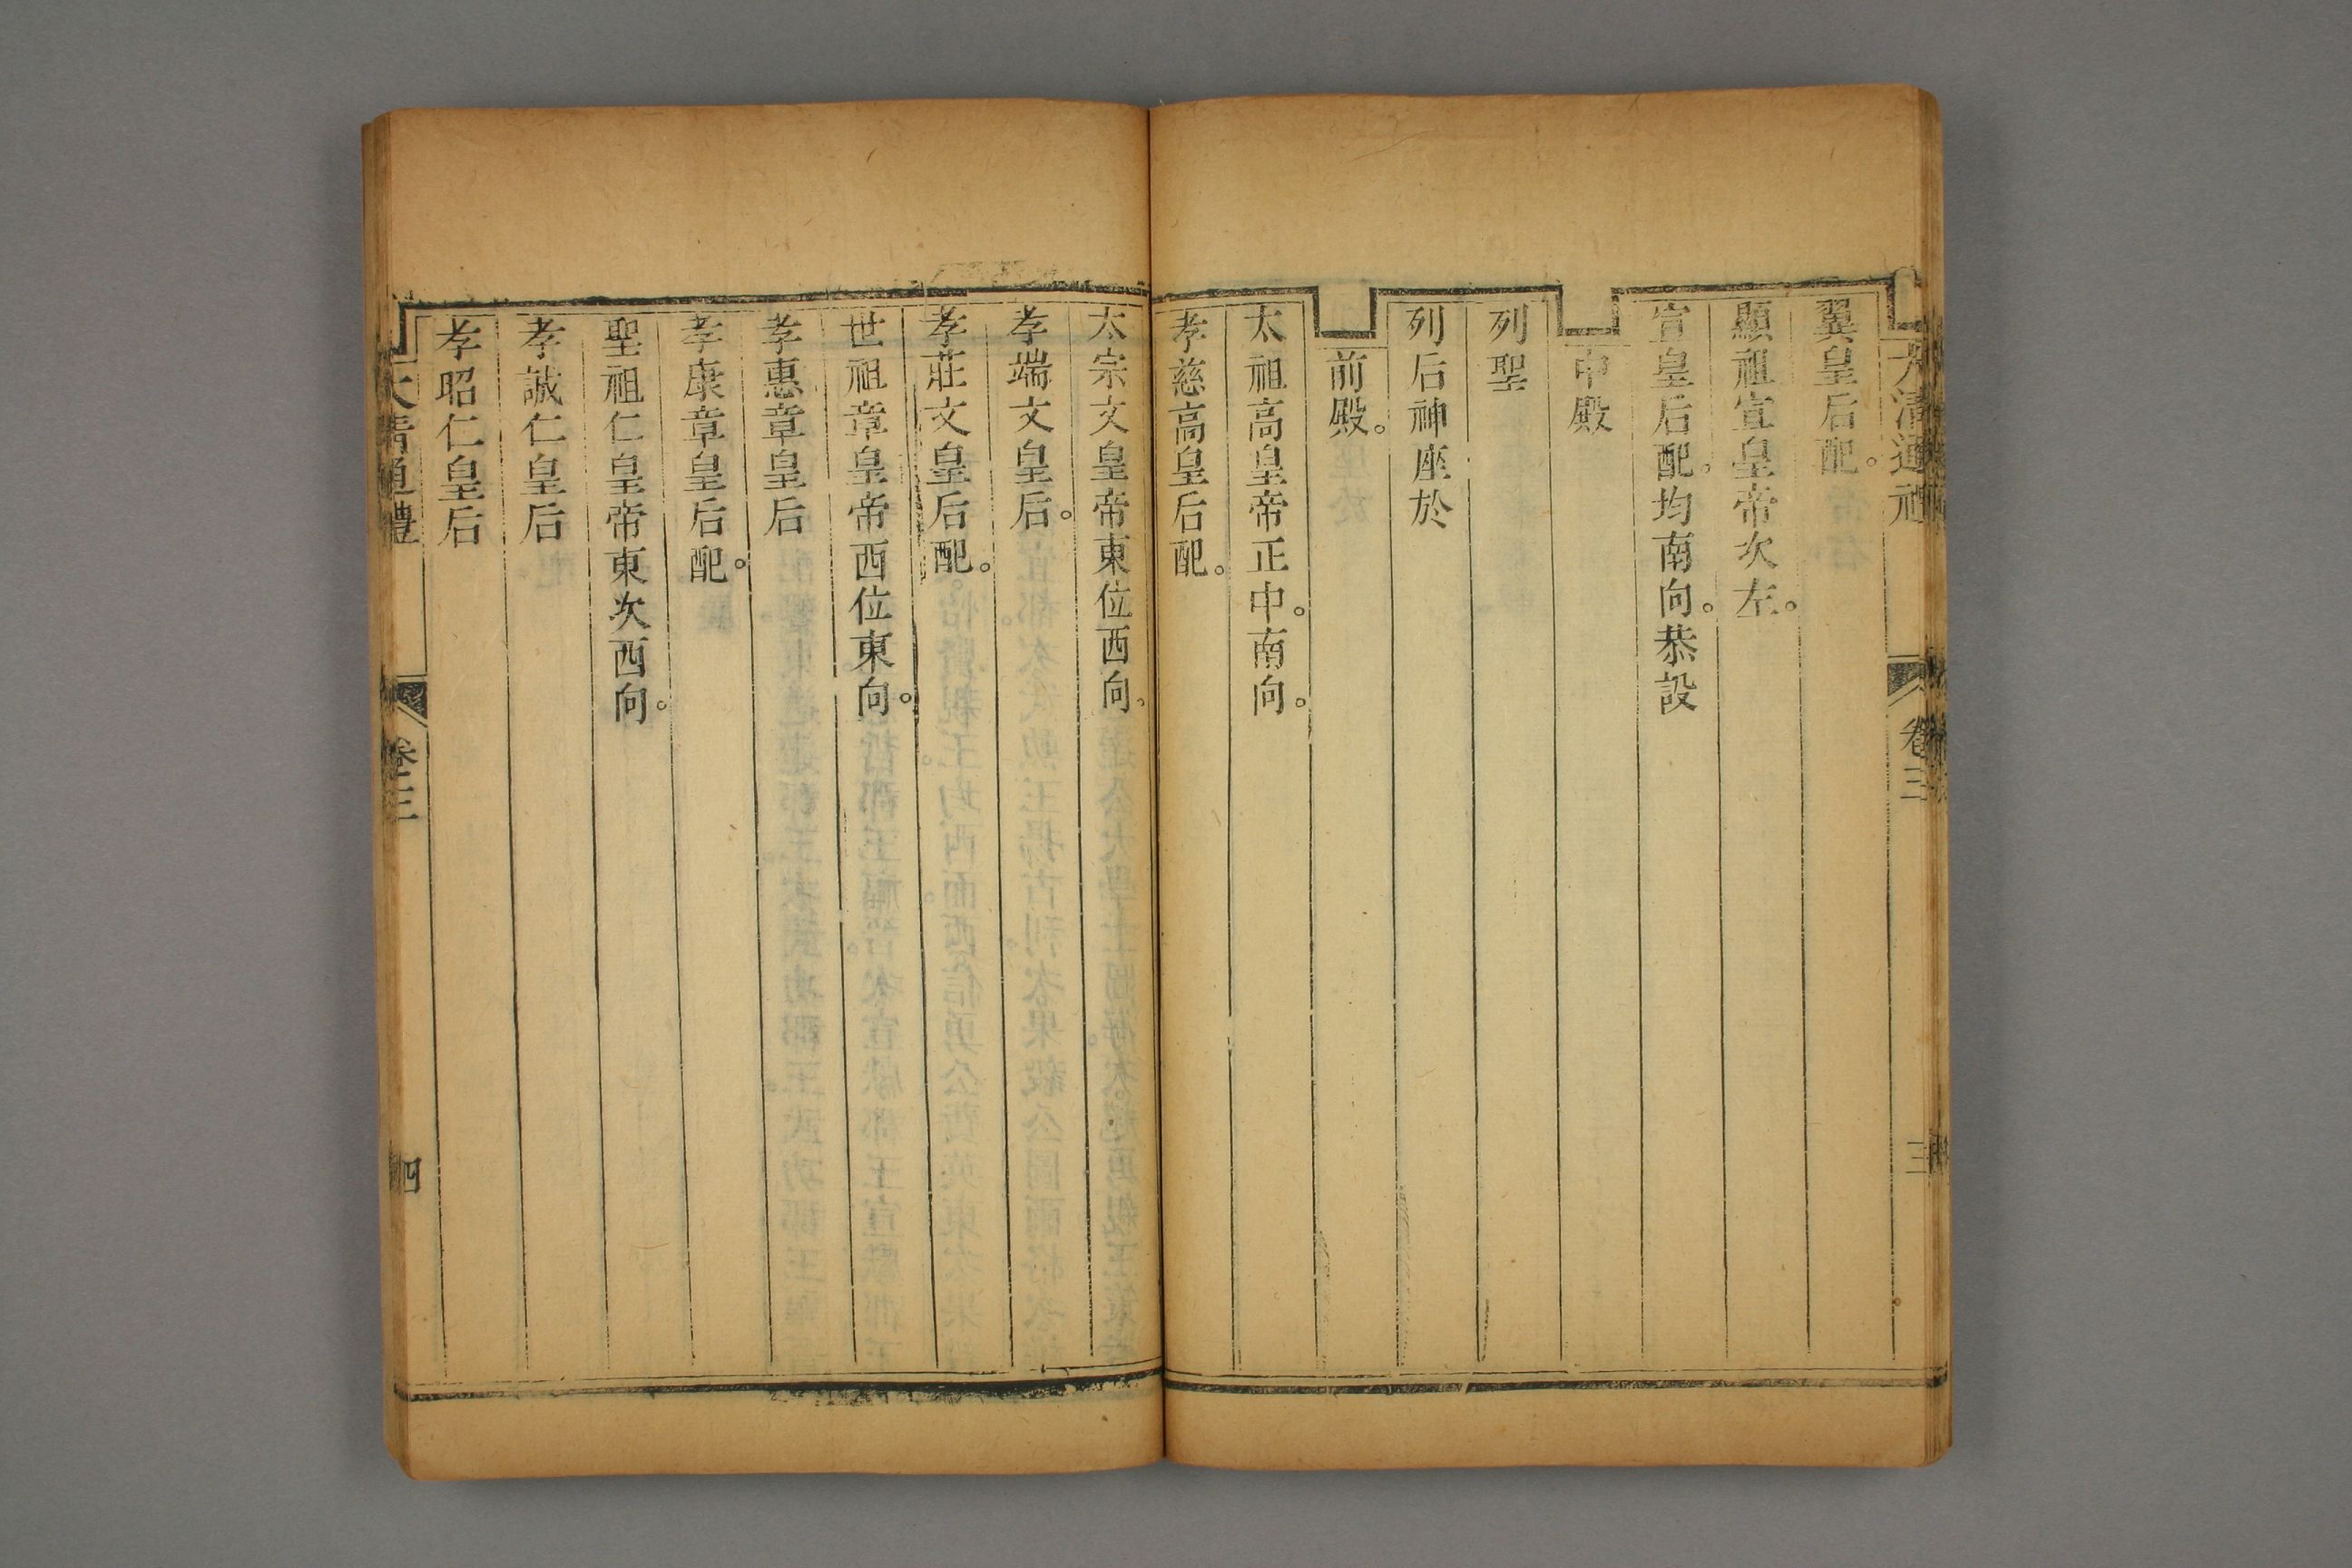 大清通禮 卷三 三
翼皇后配。
顯祖宣皇帝次左。
宣皇后配。均南向。恭設
中殿
列聖
列后神座於
前殿。
太祖高皇帝正中。南向。
孝慈高皇后配。
太宗文皇帝東位西向。
孝端文皇后。
孝莊文皇后配。
世祖章皇帝西位東向。
孝惠章皇后
孝康章皇后配。
聖祖仁皇帝東次西向。
孝誠仁皇后
孝昭仁皇后
大清通禮 卷三 四